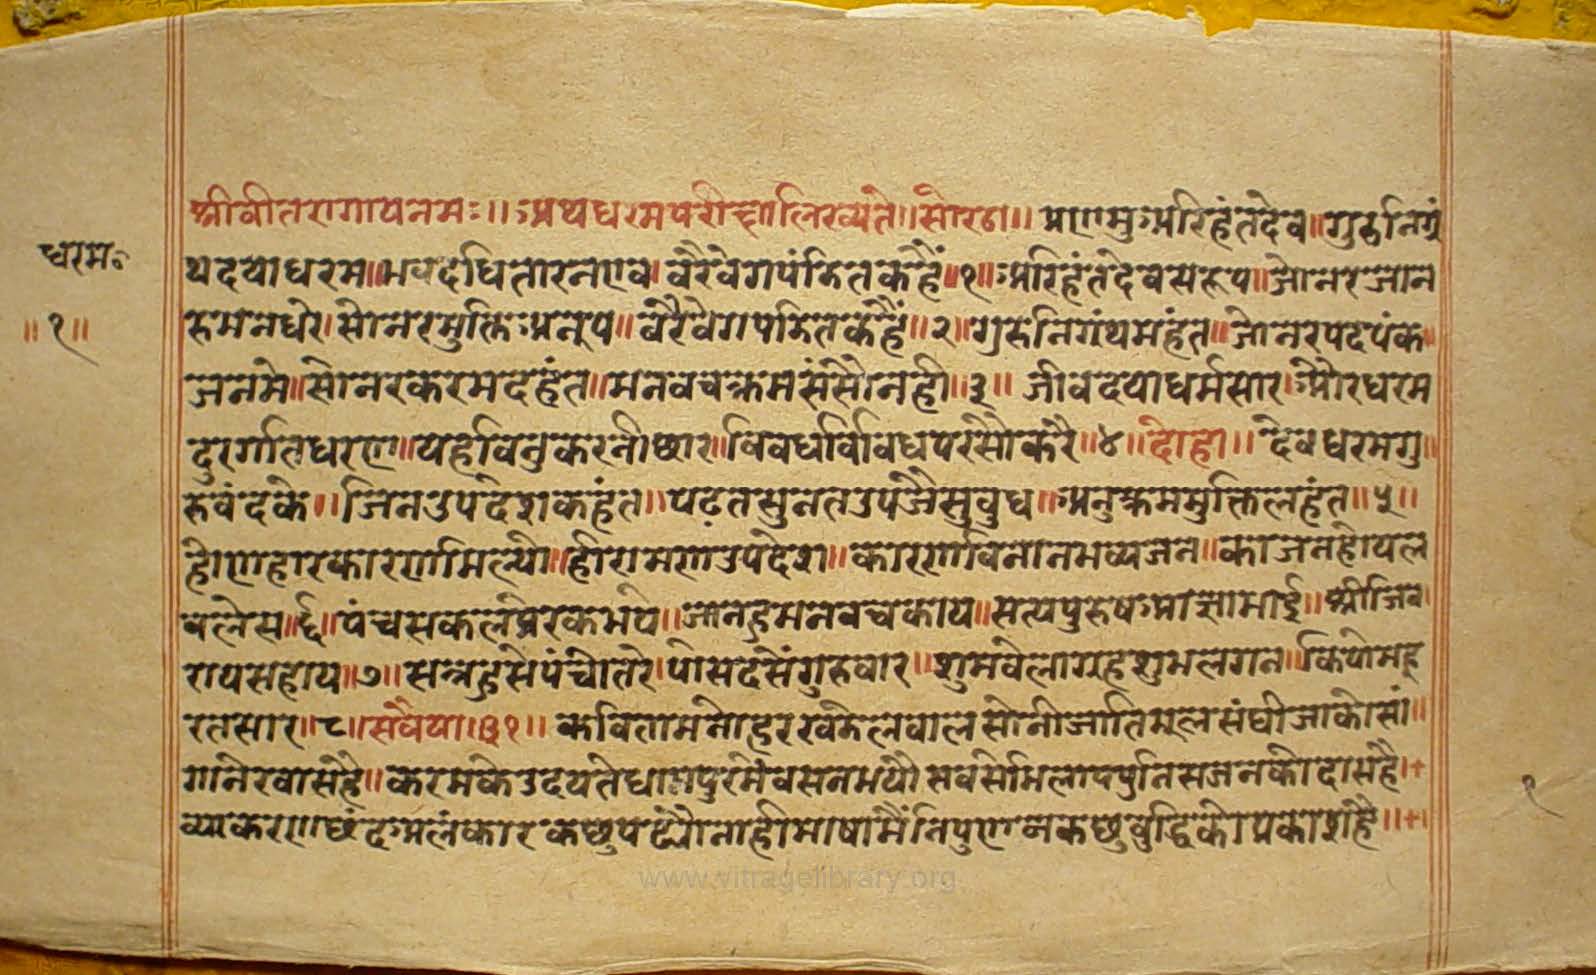 श्रीवीतरागायनमः।। अथधरमपरीक्षालिख्यते।। सोरठा।। प्रणमुअरिहंतदेव।। गुरुनिगुं
धरम॰ थदयाधरम।। भवदधितारनएव। वरैवेगपंडितकहैं।।१।। अरिहंतदेवसरूप।। जोनरजान
।।१।। रुमनधरे। सोनरमुक्तिअनूप।। वरैवेगपंडितकहैं।।२।। गुरुनिगंथमहंत।। जोनरपदपंक।।
जनमे।। सोनरकरमदहंत।। मनवचक्रमसंसौनही।।३।। जीवदयाधर्मसार। औरधरम
दुरगतिधरण।। यहविनुकरनीछार।। विवधविविधपरंसौकरै।।४।। दोहा।। देवधरमगु।।
रुवंदके।। जिनउपदेशकहंत।। पढतसुनतउपजैसुवुध।। अनुक्रममुक्तिलहंत।।५।।
होणहारकारणमिल्यौ।। हीरामणउपदेश।। कारणविनानभव्यजन।। काजनहोयल
वलेस।।६।। पंचसकल भये।। जानहुमनवचकाय।। सत्यपुरुष श्रीजिन
रायसहाय।।७।। सत्रहसैपंचोतरे। पोसदसैंगुरुवार।। शुभवेला शुभलगन।। कियोमहू
रतसार।।८।। सवैया।।३१।। कवितामनोहरखंडेलवालसोनीजातिमूलसंघीजाकोसां।।
गानेरवासहै।। करमकेउदयतेधामपुरमैवसनभयौ सवसोमिलापपुनिसजनकोदासहै।+
व्याकरणछंदअलंकारकछुपढ्यौनाहीभाषामैंनिपुण कछुवुद्धिकोप्रकाशहै।।+।
१
www.vitragelibrary.org